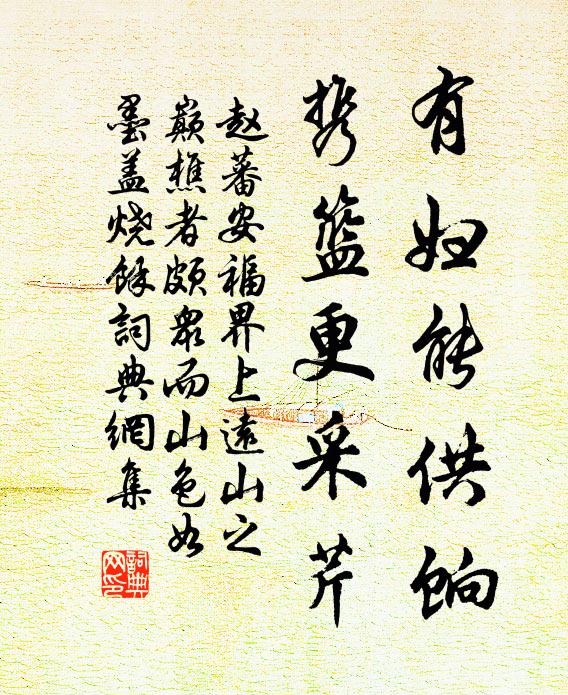 有妇能供饷
携篮更采芹
赵蕃安福界上遠山之
巅樵者颇眾而山色如
墨盖烧餘詞典網集
詞典
网印